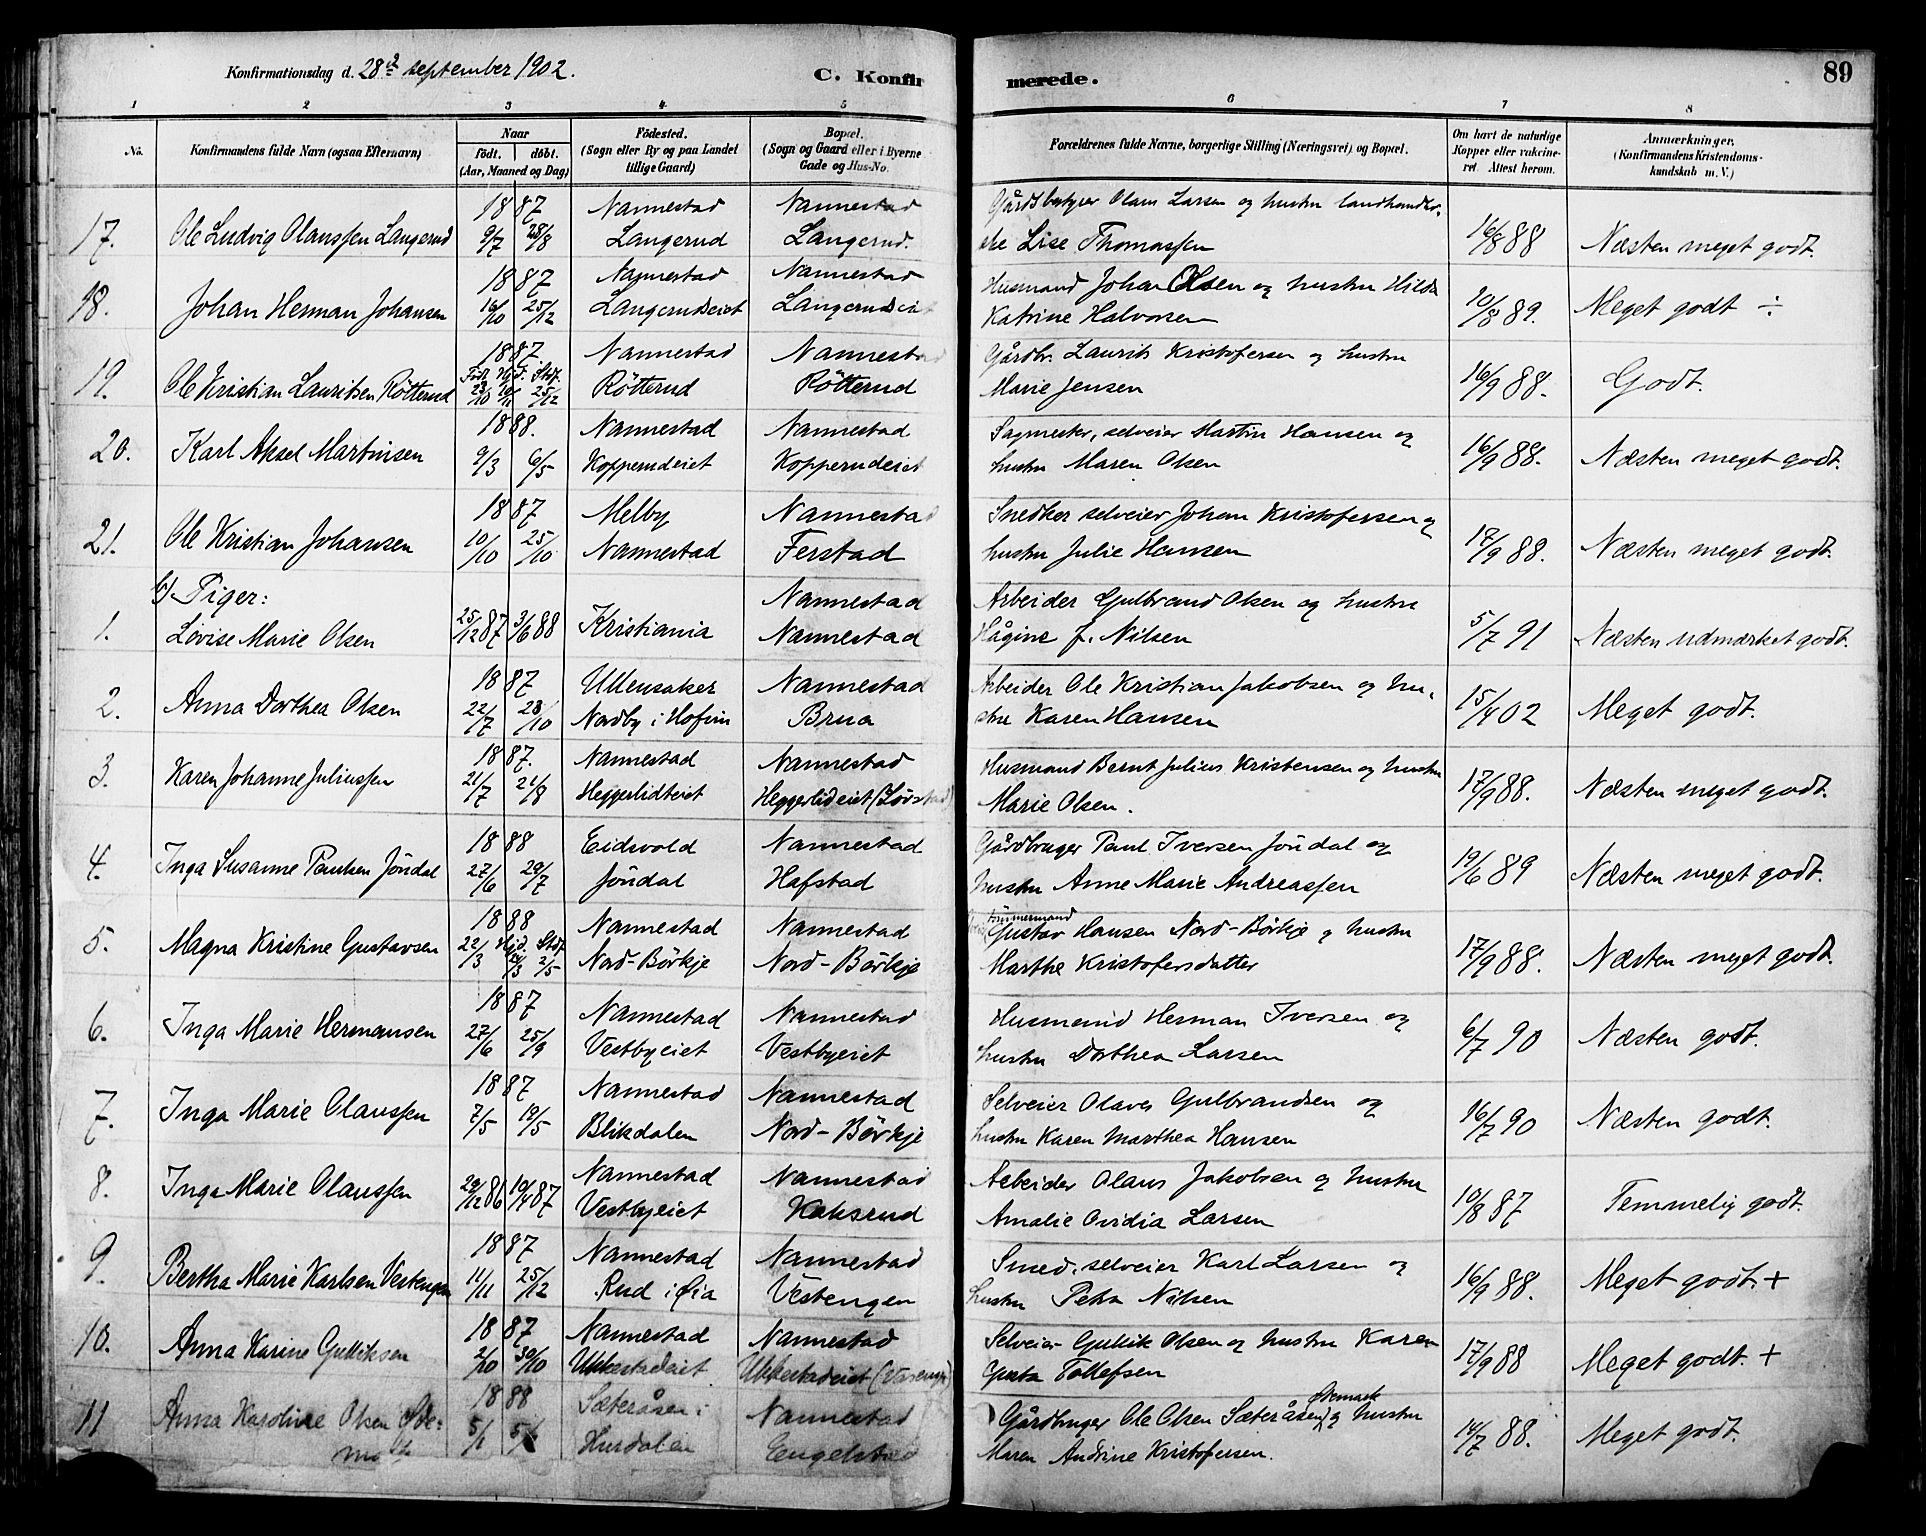 Konfirmationsdag d. 28de september 1902.
C. Konfirmerede.
89
1 2 3 4 5 6 7 8
No.
Konfirmandens fulde Navn (ogsaa Efternavn)
Naar
født. døbt.
(Aar, Maaned og Dag)
Fødested.
(Sogn eller By og paa Landet
tillige Gaard)
Bopæl.
(Sogn og Gaard eller i Byerne
Gade og Hus-No.
Forældrenes fulde Navne, borgerlige Stilling (Næringsvei) og Bopæl.
Om havt de naturlige
Kopper eller vakcine-
ret. Attest herom.
Anmærkninger.
(Konfirmandens Kristendoms-
kundskab m. V.)
1887 Nannestad Nannestad Gårdsbestyrer Olaus Larsen og hustru landhandler-
17. Ole Ludvig Olaussen Langerud 9/7 28/8 Langerud Langerud. ske Lise Thomassen 16/8 88 Næsten meget godt.
1887 Nannestad Nannestad Husmand Johan Olsen og hustru Hilda
18. Johan Herman Johansen 16/10 25/12 Langerudseiet Langerudseiet Katrine Halvorsen 10/8 89. Meget godt ÷
1887. Nannestad Nannestad Gårdbr. Laurits Kristofersen og hustru
Født Hjd. Stdf.
19. Ole Kristian Lauritsen Røtterud 23/10 25/12 Røtterud Røtterud Marie Jensen 16/9 88. Godt.
1888. Nannestad Nannestad Sagmester, selveier Martin Hansen og
20. Karl Aksel Martinsen 9/3 6/5 Kopperudeiet Kopperudeiet hustru Maren Olsen 16/9 88. Næsten meget godt.
1887 Melby Nannestad Snedker selveier Johan Kristofersen og
21. Ole Kristian Johansen 10/10 25/10 Nannestad Ferstad hustru Julie Hansen 17/9 88. Næsten meget godt.
b) Piger: Nannestad Arbeider Gulbrand Olsen og hustru
1. Lovise Marie Olsen 25/12 87 3/6 88 Kristiania Nannestad Hågine f. Nilsen 5/7 91 Næsten udmærket godt.
1887 Ullensaker Nannestad Arbeider Ole Kristian Jakobsen og hu-
2. Anna Dorthea Olsen 22/7 23/10 Nordby i Hofvin Brua stru Karen Hansen 15/4 02 Meget godt.
1887. Nannestad Nannestad Husmand Bernt Julius Kristensen og hustru
3. Karen Johanne Juliussen 21/7 21/8 Heggerlidteiet Heggerlideiet (Løvstad) Marie Olsen. 17/9 88. Næsten meget godt.
1888 Eidsvold Nannestad Gårdbruger Paul Iversen Jøndal og
4. Inga Susanne Paulsen Jøndal 27/6 29/7 Jøndal Hafstad hustru Anne Marie Andreassen 19/6 89 Næsten meget godt.
1888 Nannestad Nannestad tømmermand Gustav Hansen Nord-Børkje og hustru
5. Magna Kristine Gustavsen 22/3 Hjd. Stdf. 2/5 Nord-Børkje Nord-Børkje Marthe Kristofersdatter 17/9 88. Næsten meget godt.
1887 Nannestad Nannestad Husmand Herman Iversen og
6. Inga Marie Hermansen 27/6 25/9 Vestbyeiet Vestbyeiet hustru Dorthea Larsen 6/7 90 Næsten godt.
1887 Nannestad Nannestad Selveier Olaves Gulbrandsen og
7. Inga Marie Olaussen 7/5 19/5 Blikdalen Nord-Børkje hustru Karen Marthea Hansen 16/7 90 Næsten godt.
Nannestad Nannestad Arbeider Olaus Jakobsen og hustru
8. Inga Marie Olaussen 29/12 86 10/4 87 Vestbyeiet Kaksrud Amalie Ovidia Larsen 10/8 87 Temmelig godt.
1887 Nannestad Nannestad Smed, selveier Karl Larsen og
9. Bertha Marie Karlsen Vestengen 11/11 25/12 Rud i Øia Vestengen hustru Petra Nilsen 16/9 88. Meget godt. +
1887 Nannestad Nannestad Selveier Gullik Olsen og hustru Karen
10. Anna Karine Gulliksen 2/10 30/10 Ukkestadeiet Ukkestadeiet (Varengen) Gusta Tollefsen 17/9 88 Meget godt. +
1888 Sæteråsen i Nannestad Gårdbruger Ole Olsen Sæteråsen Ødemark og hustru
11 Anna Karoline Olsen Øde- 5/1 Hurdalen Engelstad Maren Andrine Kristofersen. 14/7 88. Meget godt.
mark